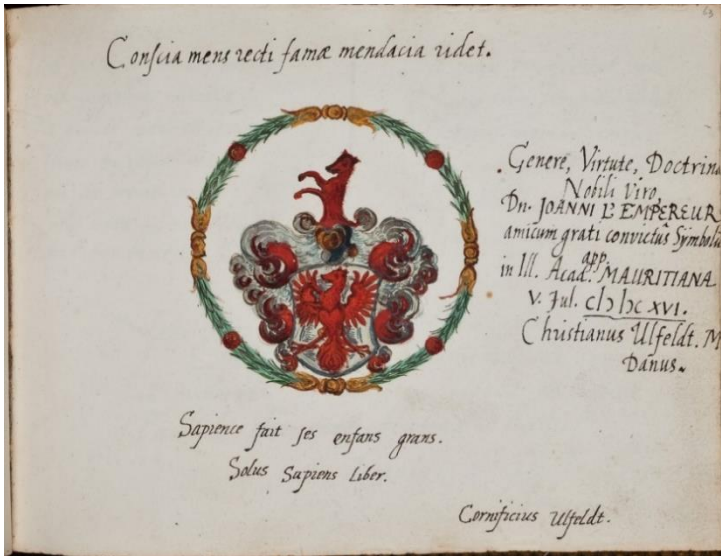 63
Conscia mens recti famæ mendacia ridet.
Genere, Virtute, Doctrina
Nobili Viro,
Dn. JOANNI L'EMPEREUR
amicum grati convictus Symbolū
app.
in Ill. Acad. MAURITIANA
V. Jul. cIɔ Iɔc XVI.
Christianus Ulfeldt. M
Danus.
Sapience fait ses enfans grans.
Solus Sapiens Liber.
Cornificius Ulfeldt.